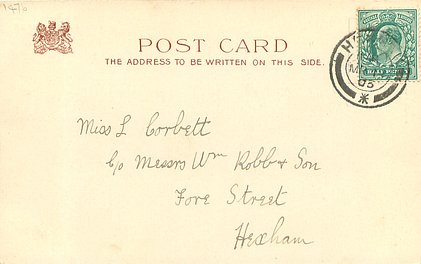 1470
POST CARD
THE ADDRESS TO BE WRITTEN ON THIS SIDE.
HALF PENNY
Miss L Corbett
c/o Messrs Wm Robb & Son
Fore Street
Hexham